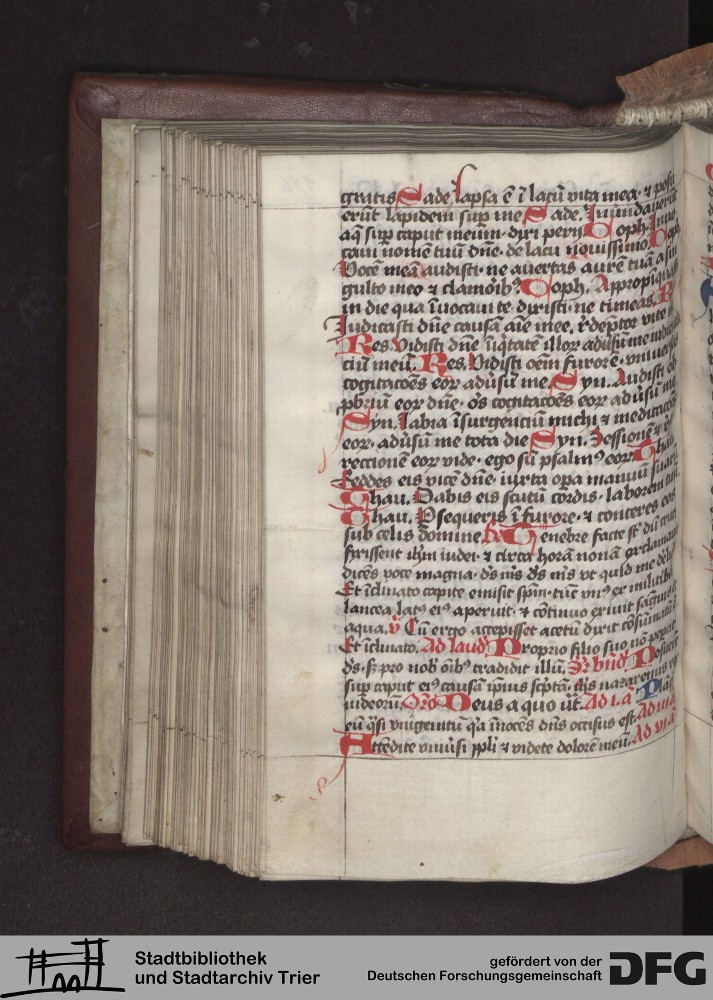 gratis Sade. Lapsa ē ī lacū vita mea· ⁊ posu
erūt lapidem sup me Sade. Inundauerūt
aq̄ sup caput meum· dixi perij Coph. Inuo
caui nomē tuū dn̄e· de lacu nouissimo. Coph
Vocē meā audisti· ne auertas aurē tuā a sin
gultu meo ⁊ clamoribꝰ Coph. Appropīquasti
in die qua īuocaui te dixisti· ne timeas. R
Iudicasti dn̄e causā aīe mee, r̄deptor vite
Res. Vidisti dn̄e īiq̄tatē illoꝝ adūsū me iudica
ciū meū. Res. Vidisti oēm furorē· vniuersas
cogitacōes eoꝝ adūsū me. Syn. Audisti ob
pbriū eoꝝ dn̄e· ōs cogitacōes eoꝝ adūsū me
Syn. Labia īsurgenciū michi ⁊ meditacōes
eoꝝ· adūsū me tota die Syn. Sessionē ⁊
reccionē eoꝝ vide· ego sū psalmꝰ eoꝝ. Thau.
Reddes eis vicē dn̄e· iuxta opa manuū suaꝝ
Thau. Dabis eis scutū cordis· laborem tuū
Thau. Psequeris ī furore· ⁊ conteres eos
sub celis domine Tenebre facte sūt dū cruci
fixissent ih̄m iudei· ⁊ circa horā nonā exclamauit
dicēs voce magna· ds̄ ms̄ ds̄ ms̄ vt quid me
Et īclinato capite emisit spm̄· tūc vnꝰ ex militibꝰ
lancea latꝰ eiꝰ aperuit· ⁊ cōtinuo exiuit sāguis ⁊
aqua. v̄ Cū ergo accepisset acetū dixit cōsūmatū
Et īclinato. Ad laud̄ Proprio filio suo nō pepcit
ds̄· sꝫ pro nob̄ oībꝰ tradidit illū. Posuerūt
sup caput eiꝰ causā ipius scptā· ih̄s nazarenus rex
iudeoꝝ. Oro Deus a quo iut. Ad i. ā Plāg
eū q̄si vnigenitū q̄a īnocēs dn̄s occisus est. Ad iii. ā
Attēdite vniūsi ppli ⁊ videte dolorē meū. Ad vi. ā
Stadtbibliothek
und Stadtarchiv Trier
gefördert von der
Deutschen Forschungsgemeinschaft DFG